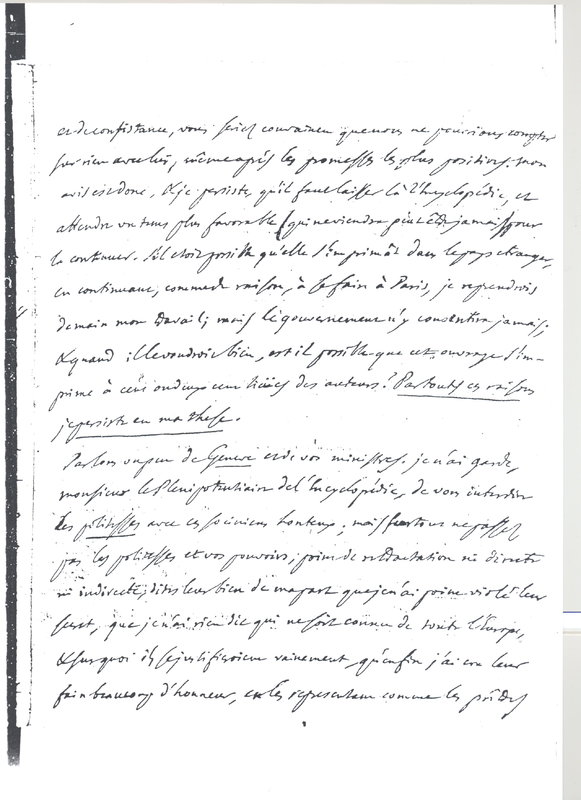 et de consistance, vous seriez convaincu que nous ne pourrions compter
sur rien avec lui, même après les promesses les plus positives. mon
avis est donc, & je persiste, qu'il faut laisser là l'Encyclopédie, et
attendre un tems plus favorable (qui ne reviendra peut être jamais) pour
la continuer. S'il etoit possible qu'elle s'imprimât dans le pays etranger,
en continuant, comme de raison, à se faire à Paris, je reprendrois
demain mon travail; mais le gouvernement n'y consentira jamais;
& quand il le voudroit bien, est il possible que cet ouvrage s'im-
prime à cent ou deux cent lieües des auteurs? Par toutes ces raisons
je persiste en ma these.
Parlons un peu de Geneve et de vos ministres. je n'ai garde,
monsieur le Plenipotentiaire de l'Encyclopédie, de vous interdire
les politesses avec ces sociniens honteux; mais surtout ne passez
pas les politesses et vos pouvoirs; point de retractation ni directe
ni indirecte; dites leur bien de ma part que je n'ai point violé leur
secret, que je n'ai rien dit qui ne soit connu de toute l'Europe,
& sur quoi ils se justifieroient vainement, qu'enfin j'ai cru leur
faire beaucoup d'honneur, en les representant comme les prêtres